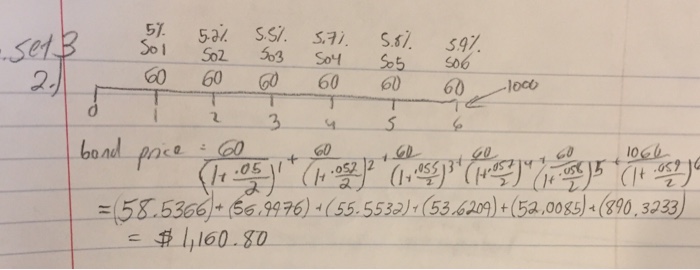 . set 3
5% 5.2% 5.5% 5.7% 5.8% 5.9%
S01 S02 S03 S04 S05 S06
2.) 60 60 60 60 60 60 1000
0 1 2 3 4 5 6
bond price = 60/(1+.05/2)^1 + 60/(1+.052/2)^2 + 60/(1+.055/2)^3 + 60/(1+.057/2)^4 + 60/(1+.058/2)^5 + 1060/(1+.059/2)^6
= (58.5366)+(56.9976)+(55.5532)+(53.6209)+(52.0085)+(890.3233)
= $1,160.80